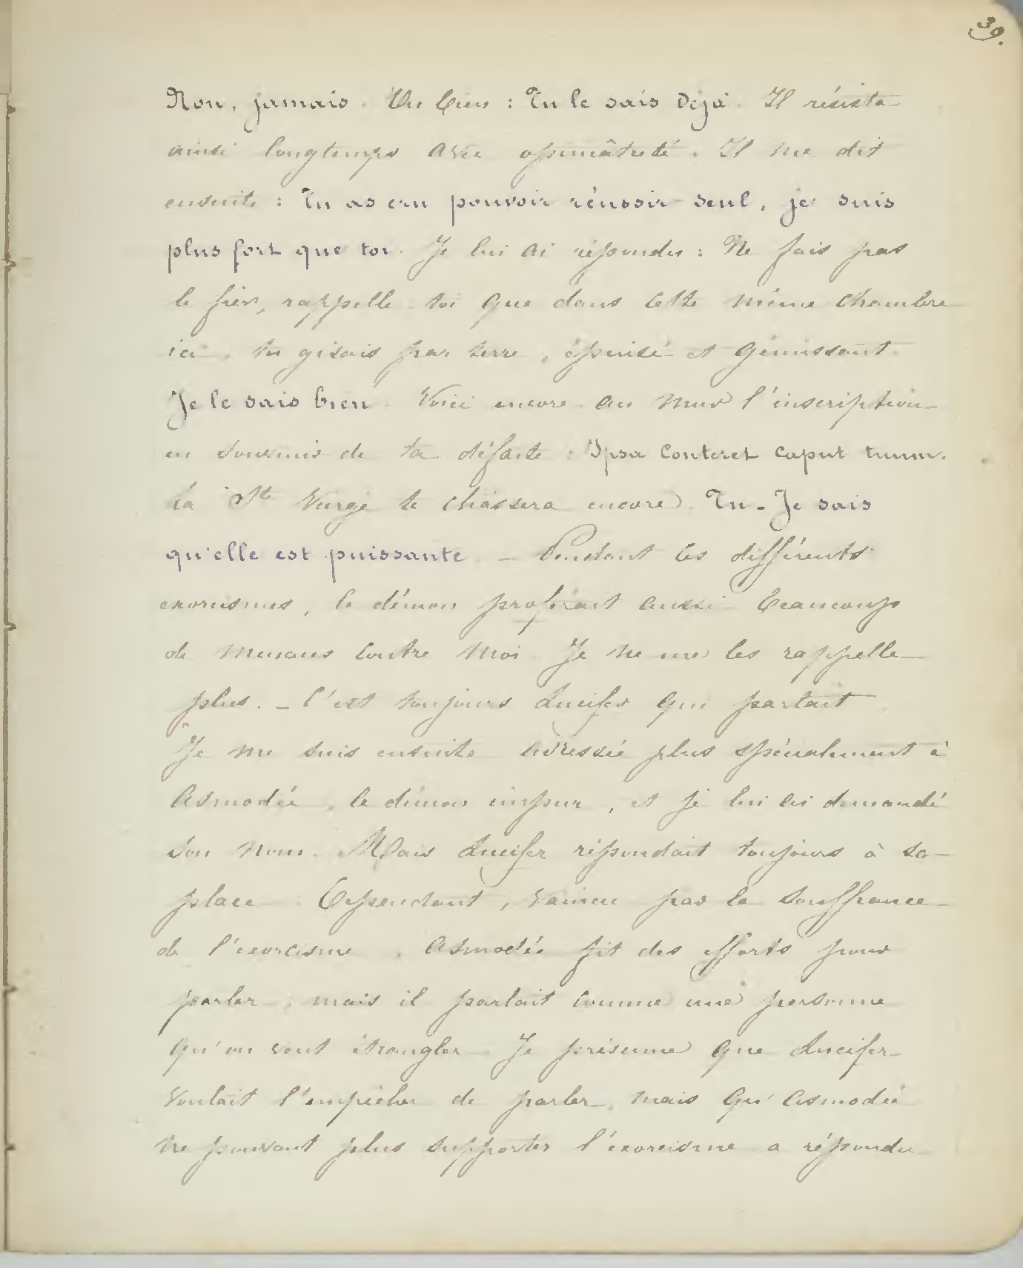 39.
Non, jamais. Eh bien : Tu le sais déjà. Il résista
ainsi longtemps avec opiniâtreté. Il me dit
ensuite : Tu as cru pouvoir réussir seul, je suis
plus fort que toi. Je lui ai répondu : Ne fais pas
le fier, rappelle-toi que dans cette même chambre
ici, tu gisais par terre, épuisé et gémissant.
Je le sais bien. Voici encore au mur l'inscription
en souvenir de ta défaite : Ipsa conteret caput tuum.
La Ste Vierge te chassera encore. Tu - Je sais
qu'elle est puissante. - Pendant les différents
exorcismes, le démon proférait aussi beaucoup
de menaces contre moi. Je ne me les rappelle
plus. - C'est toujours Lucifer qui parlait.
Je me suis ensuite adressé plus spécialement à
Asmodée, le démon impur, et je lui ai demandé
son nom. Mais Lucifer répondait toujours à sa
place. Cependant, vaincu par la souffrance
de l'exorcisme, Asmodée fit des efforts pour
parler, mais il parlait comme une personne
qu'on veut étrangler. Je présume que Lucifer
voulait l'empêcher de parler, mais qu'Asmodée
ne pouvant plus supporter l'exorcisme a répondu